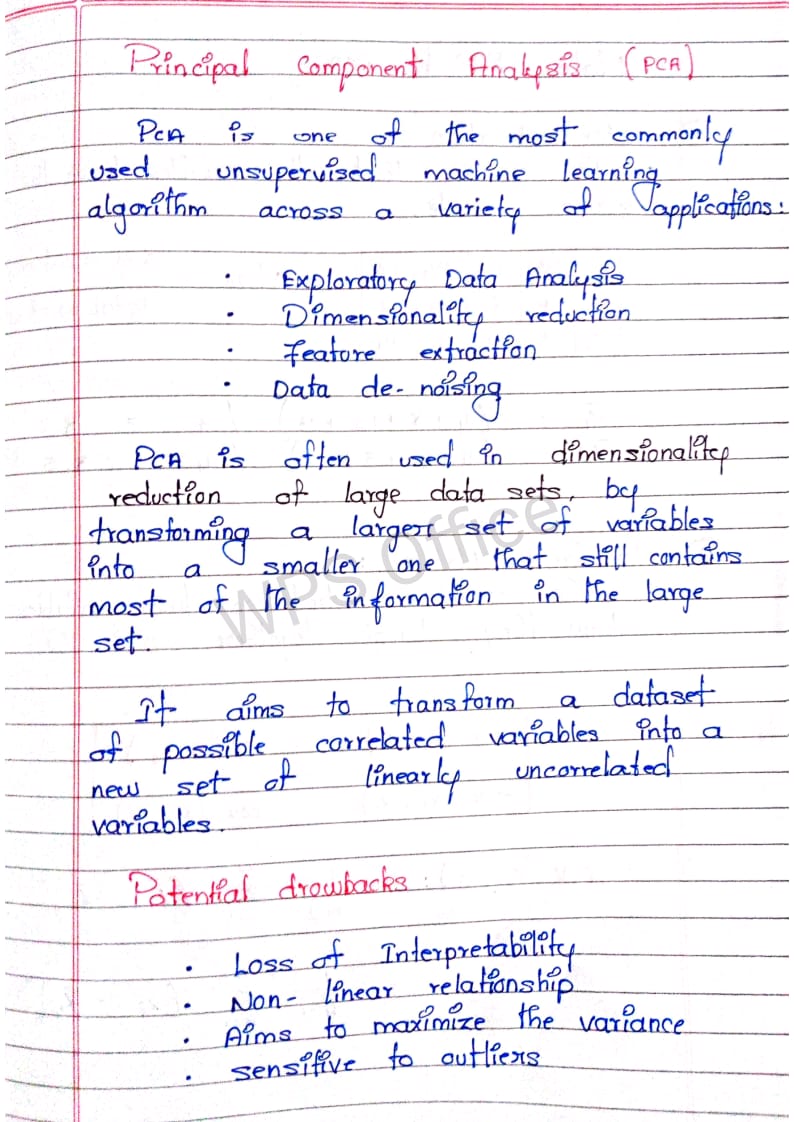 Principal Component Analysis (PCA)
PCA is one of the most commonly
used unsupervised machine learning
algorithm across a variety of applications:
• Exploratory Data Analysis
• Dimensionality reduction
• Feature extraction
• Data de-noising
PCA is often used in dimensionality
reduction of large data sets, by
transforming a larger set of variables
into a smaller one that still contains
most of the information in the large
set.
WPS Office
It aims to transform a dataset
of possible correlated variables into a
new set of linearly uncorrelated
variables.
Potential drowbacks:
• Loss of Interpretability
• Non-linear relationship
• Aims to maximize the variance
• sensitive to outliers